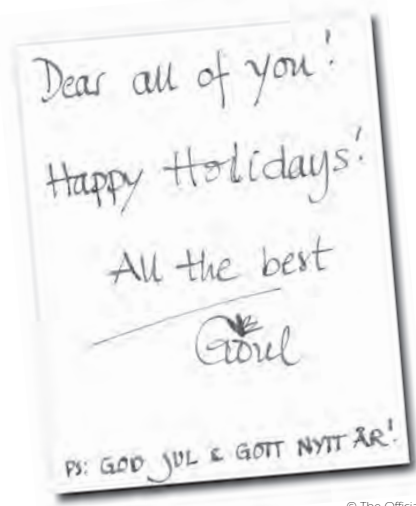 Dear all of you!
Happy Holidays!
All the best
PS: GOD JUL & GOTT NYTT ÅR!
© The Official